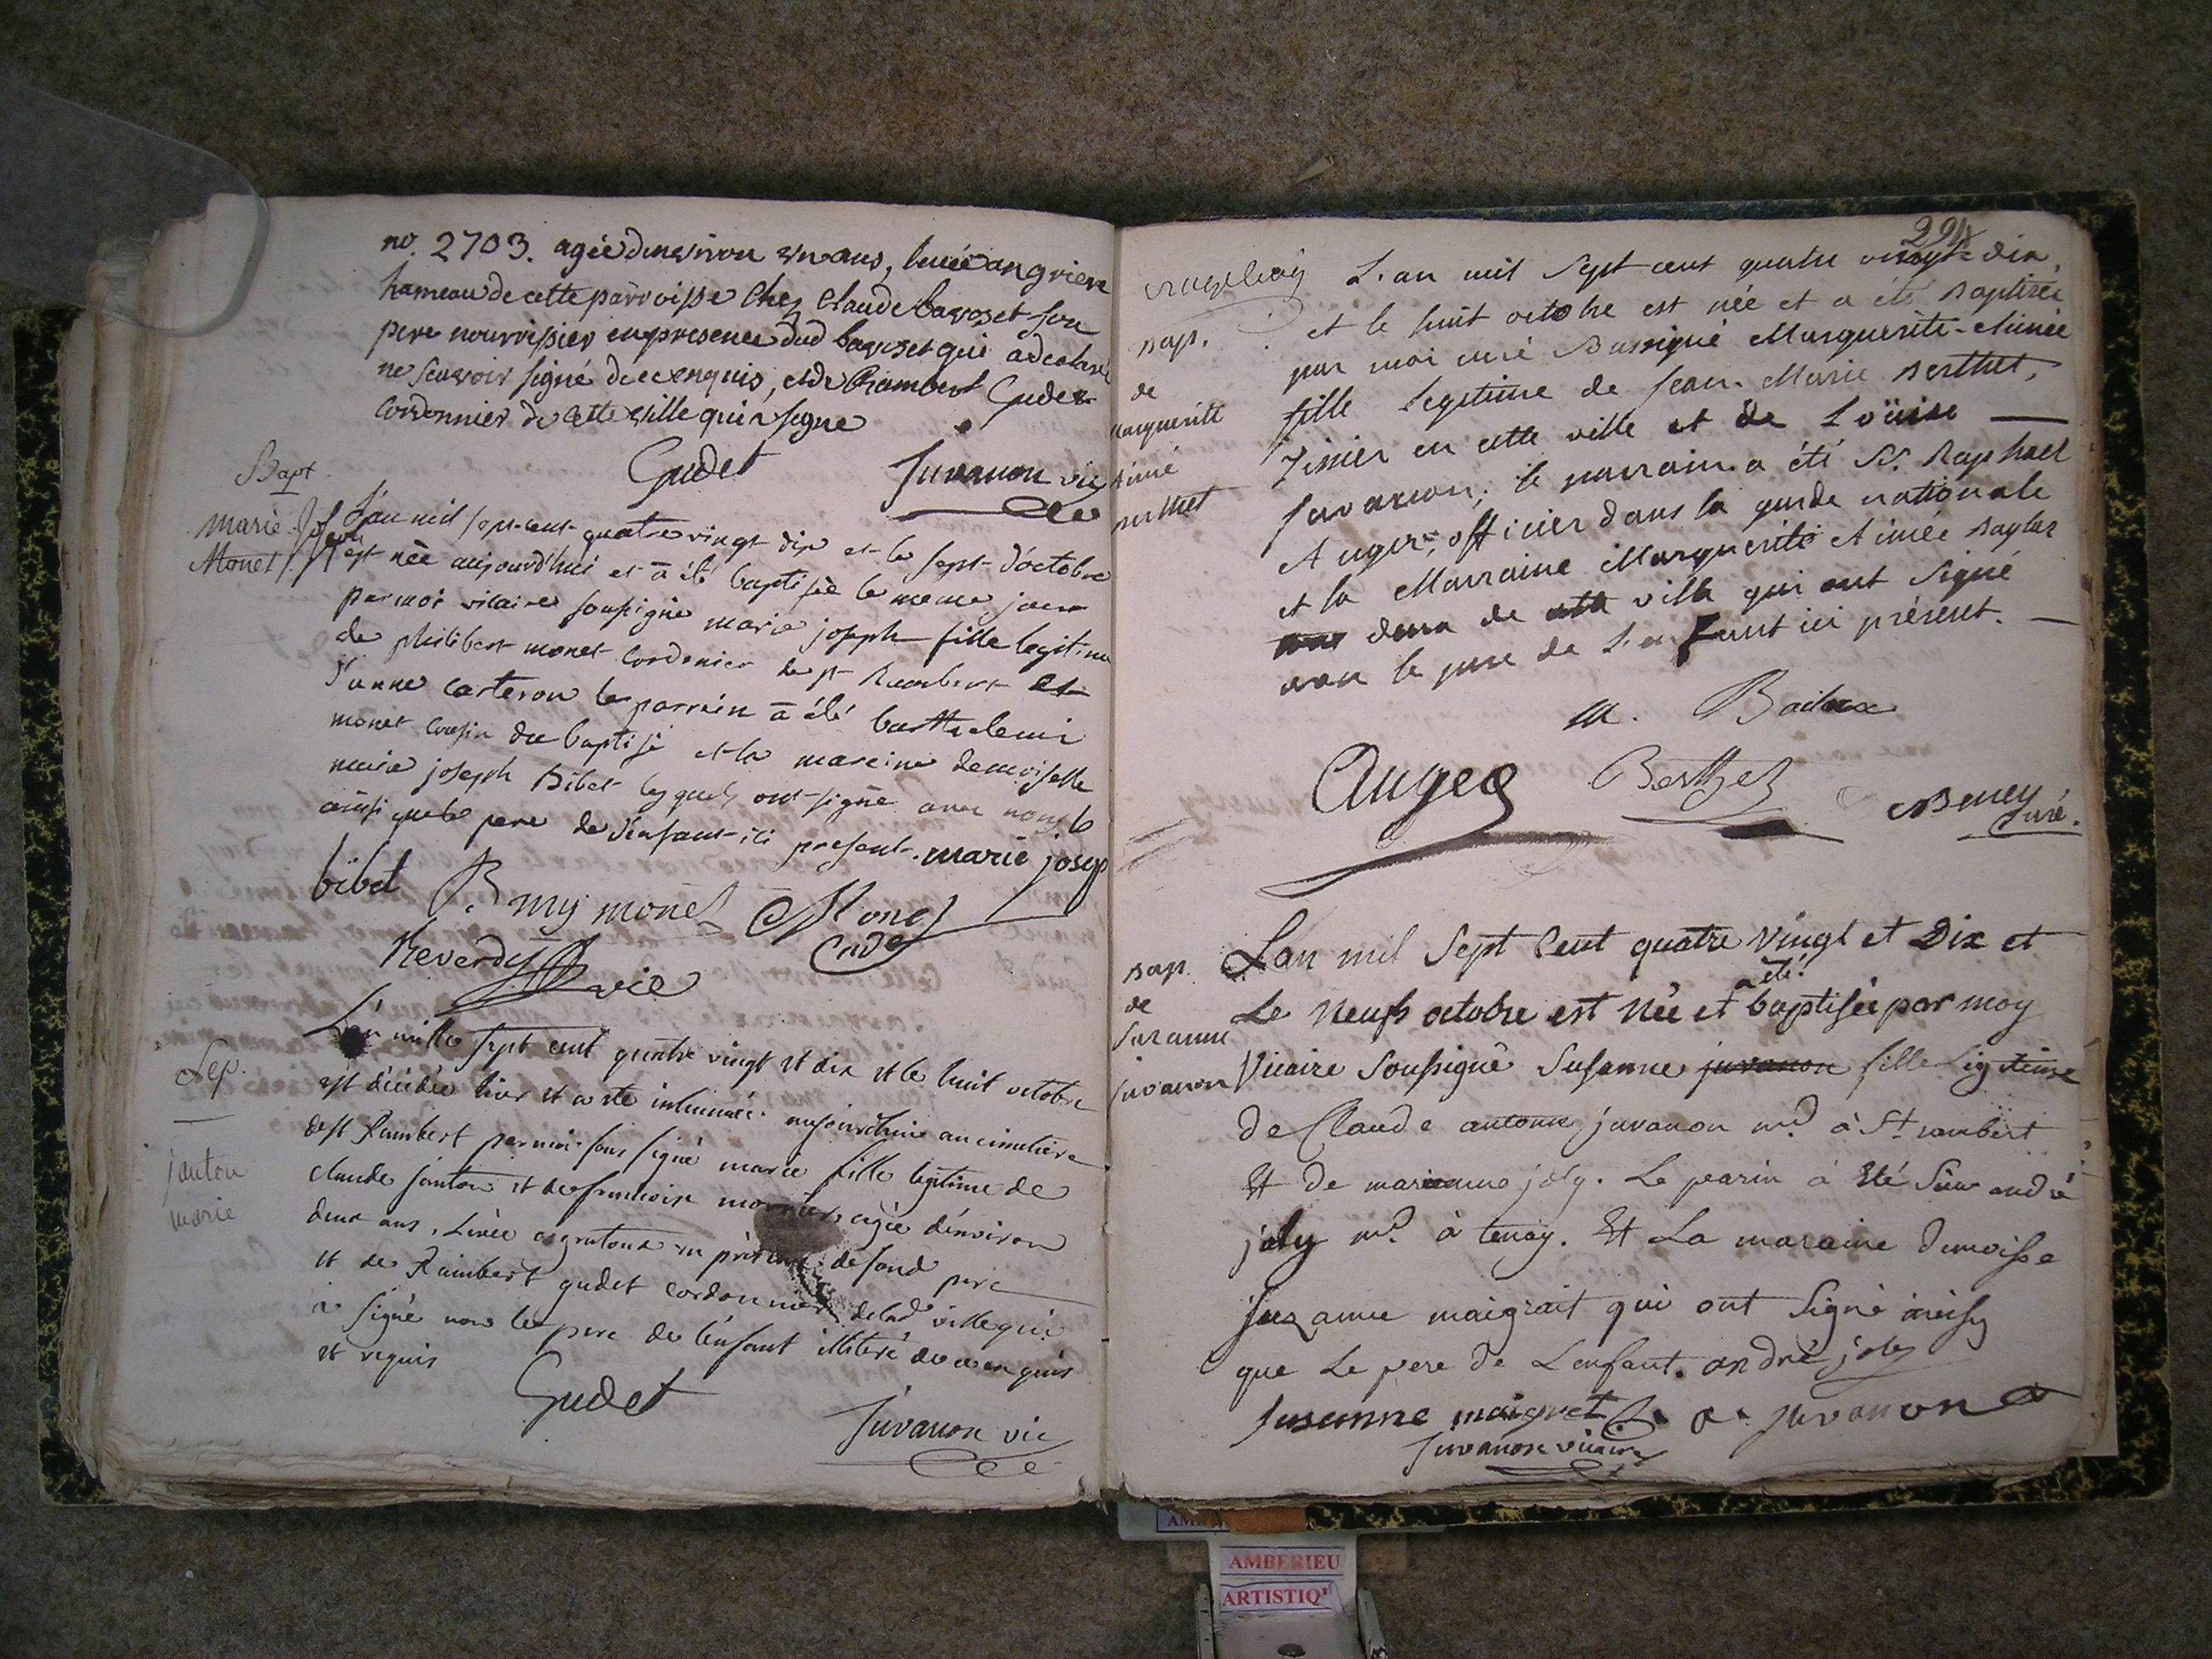 no. 2703. agée denviron un ans, levée angrieve
hameau de cette parroisse Chez Claude bavozet son
pere nourrissier en presence dud bavozet qui a declaré
ne scavoir signé de ce enquis, et de Rambert Gudet
Cordonnier de cette ville qui a signe
Gudet Juvanon vic
Bapt.
marie Joseph
Monet
L'an mil sept-cent quatre vingt dix et le sept d'octobre
est née aujourd'hui et a été baptisée le meme jour
par moi vicaire soussigné marie joseph fille legitime
de philibert monet Cordonier de st Rambert et
janne carteron le parrein a été barthelemi
monet cousin du baptisé et la mareine demoiselle
marie joseph Bibet lesquels ont signé avec nous
ainsi que le pere de l'enfant ici present. marie josep
bibet B my monet Monet
Reverdy vic
Sep.
janton
marie
L'an mille sept cent quatre vingt et dix et le huit octobre
est décédée hier et a été inhumée aujourdhui au cimetiere
de st Rambert par moi sous signé marie fille legitime de
claude janton et de francoise agée d'environ
deux ans, Levée en présence de sond pere
et de Rambert gudet cordonnier de lad ville qui
a signé non le pere de l'enfant illiteré de ce enquis
et requis
Gudet
Juvanon vic
294
bap.
de
marguerite
aimé
berthet
L'an mil sept cent quatre vingt-dix
et le huit octobre est née et a été baptisée
par moi curé soussigné Marguerite-Aimée
fille legitime de Jean-Marie Berthet,
en cette ville et de Loüise
Juvanon; le parrain a été Sr. Raphael
Auger, officier dans la garde nationale
et la Marraine Marguerite Aimée
de cette ville qui ont signé
avec le pere de l'enfant ici présent.
m.
Auger Berthet
Beney
Curé.
bap.
de
Suzanne
juvanon
L'an mil Sept Cent quatre Vingt et Dix et
Le Neuf octobre est Née et a été baptisée par moy
Vicaire Soussigné Susanne juvanon fille Légitime
de Claude antoine juvanon md. à St. rambert
Et de marianne joly. Le parin à Eté Sieur andré
joly md. à tenay. Et La maraine Demoisse
Suzanne maigrait qui ont Signé
que Le pere De L'enfant. andré joly
Susanne maigret C. a. juvanon
Juvanon vicaire
AMBERIEU
ARTISTIQ